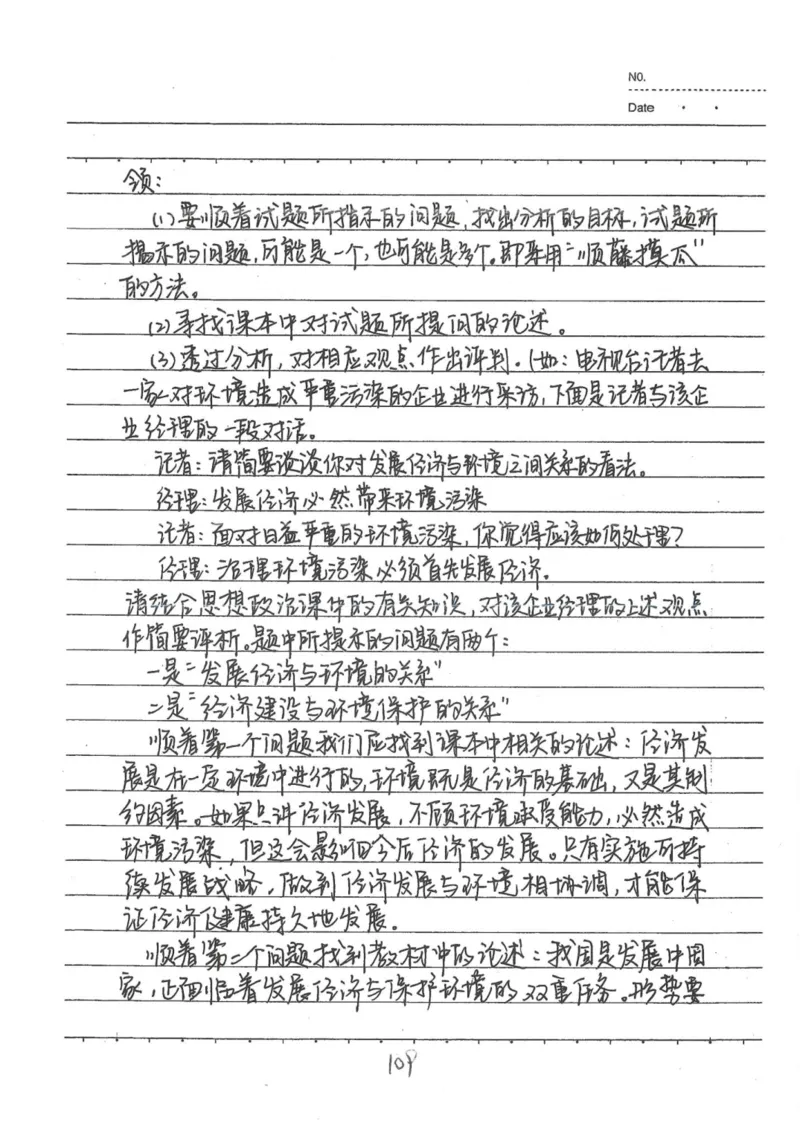 NO.
Date
领:
(1)要顺着试题所指示的问题,找出分析的目标,试题所
揭示的问题,可能是一个,也可能是多个。即采用“顺藤摸瓜”
的方法。
(2)寻找课本中对试题所提问的论述。
(3)透过分析,对相应观点作出评判。(如:电视台记者去
一家对环境造成严重污染的企业进行采访,下面是记者与该企
业经理的一段对话。
记者:请简要谈谈你对发展经济与环境之间关系的看法。
经理:发展经济必然带来环境污染
记者:面对日益严重的环境污染,你觉得应该如何处理?
经理:治理环境污染必须首先发展经济。
请结合思想政治课中的有关知识,对该企业经理的上述观点
作简要评析。题中所提示的问题有两个:
一是“发展经济与环境的关系”
二是“经济建设与环境保护的关系”
顺着第一个问题我们应找到课本中相关的论述:经济发
展是在一定环境中进行的,环境既是经济的基础,又是其制
约因素。如果只讲经济发展,不顾环境承受能力,必然造成
环境污染,但这会影响今后经济的发展。只有实施所持
续发展战略,做到经济发展与环境相协调,才能保
证经济健康持久地发展。
顺着第二个问题找到教材中的论述:我国是发展中国
家,正面临着发展经济与保护环境的双重任务。形势要
109